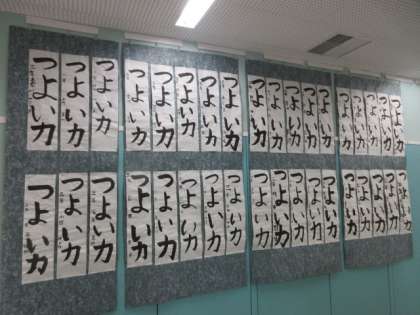 つよい力
つよい力
つよい力
つよい力
つよい力
つよい力
つよい力
つよい力
つよい力
つよい力
つよい力
つよい力
つよい力
つよい力
つよい力
つよい力
つよい力
つよい力
つよい力
つよい力
つよい力
つよい力
つよい力
つよい力
つよい力
つよい力
つよい力
つよい力
つよい力
つよい力
つよい力
つよい力
つよい力
つよい力
つよい力
つよい力